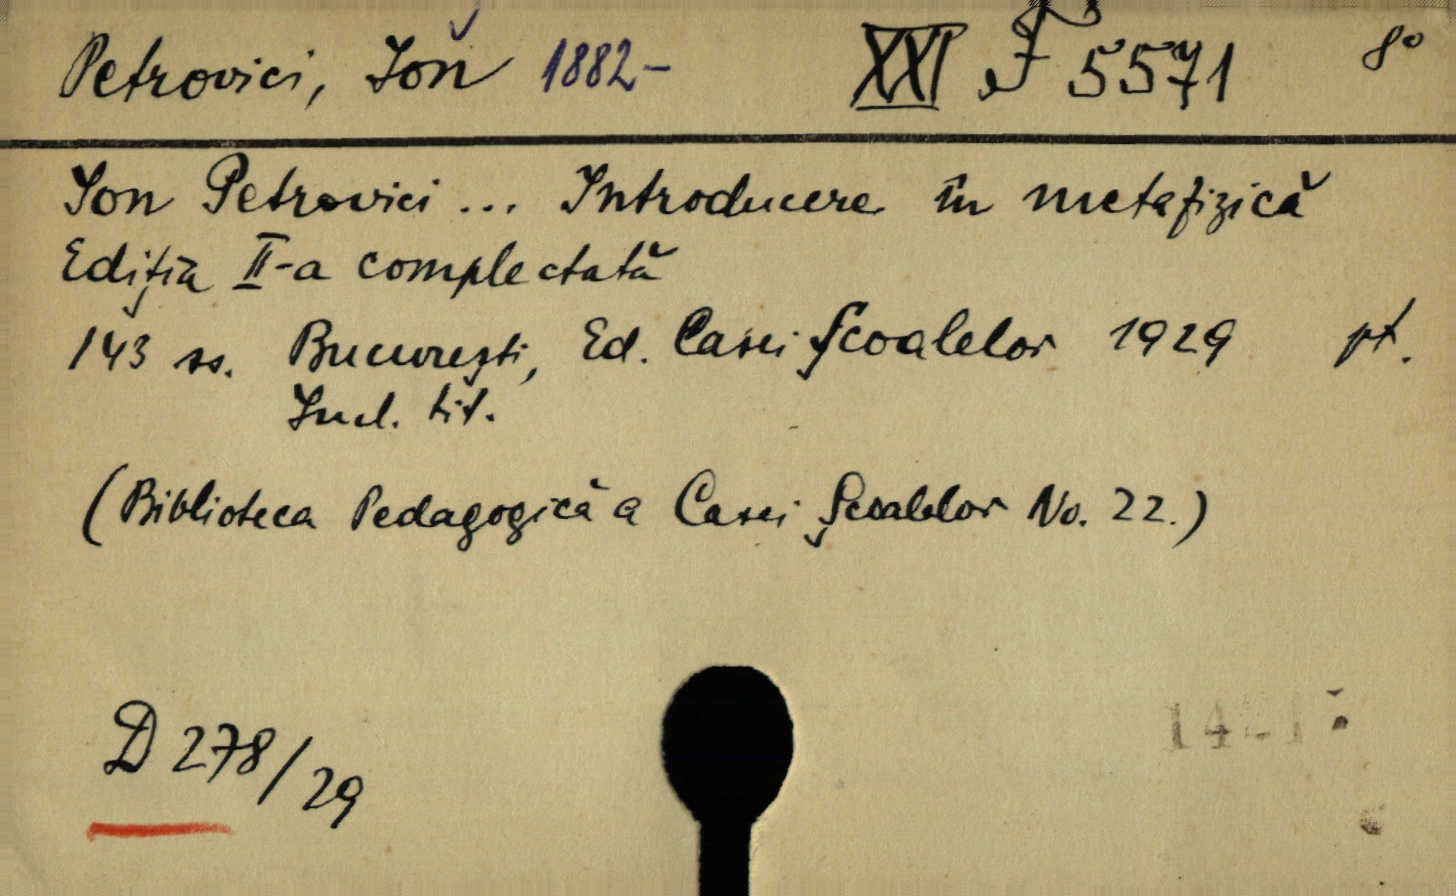 Petrovici, Ion 1882- XXI F 5571 8°
Ion Petrovici ... Introducere în metafizică
Ediţia II-a complectată
143 ss. Bucureşti, Ed. Casei Şcoalelor 1929 pt.
Incl. tit.
(Biblioteca Pedagogică a Casei Şcoalelor No. 22.)
D 278/29